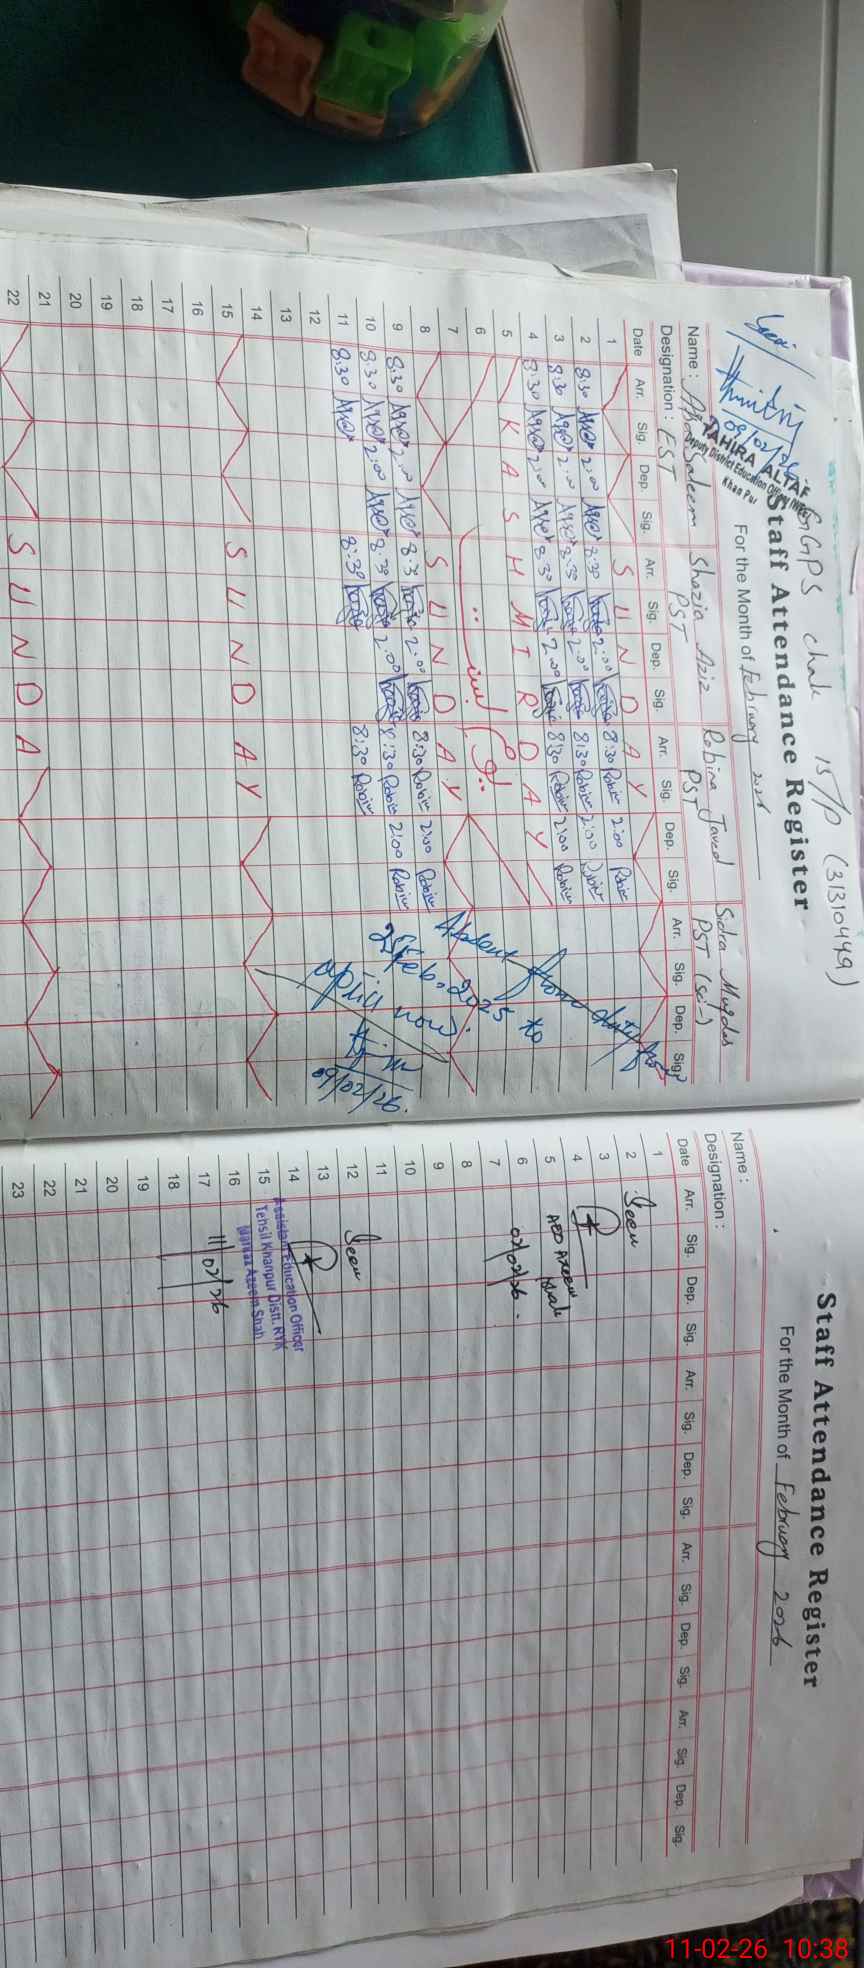 GGPS chak 15/P (31310449)
Staff Attendance Register
For the Month of February 2026
Seen
09/02/26
TAHIRA ALTAF
Deputy District Education Officer (WEE)
Khan Pur
Name: Saleem Shazia Aziz Robina Javed Sidra Muqdas
Designation: EST PST PST PST (Sci-)
Date Arr. Sig. Dep. Sig. Arr. Sig. Dep. Sig. Arr. Sig. Dep. Sig. Arr. Sig. Dep. Sig.
1 SUNDAY
2 8:30 2:00 8:30 2:00 8:30 Robina 2:00 Robina
3 8:30 2:00 8:30 2:00 8:30 Robina 2:00 Robina
4 8:30 2:00 8:30 2:00 8:30 Robina 2:00 Robina
5 KASHMIR DAY
6
7
8 SUNDAY
9 8:30 2:00 8:30 2:00 8:30 Robina 2:00 Robina
10 8:30 2:00 8:30 2:00 8:30 Robina 2:00 Robina
11 8:30 8:30 8:30 Robina
12
13
14
15 SUNDAY
16
17
18
19
20
21
22 SUNDA
Absent from duty from
25 Feb. 2025 to
april now.
09/02/26.
Staff Attendance Register
For the Month of February 2026
Name:
Designation:
Date Arr. Sig. Dep. Sig. Arr. Sig. Dep. Sig. Arr. Sig. Dep. Sig. Arr. Sig. Dep. Sig.
1
2 Seen
3
4
5 AEO Azeem Shah
6 02/02/26.
7
8
9
10
11
12 Seen
13
14
15
16
17 11/02/26
18
19
20
21
22
23
Assistant Education Officer
Tehsil Khanpur Distt. RYK
Markaz Azeem Shah
11-02-26 10:38